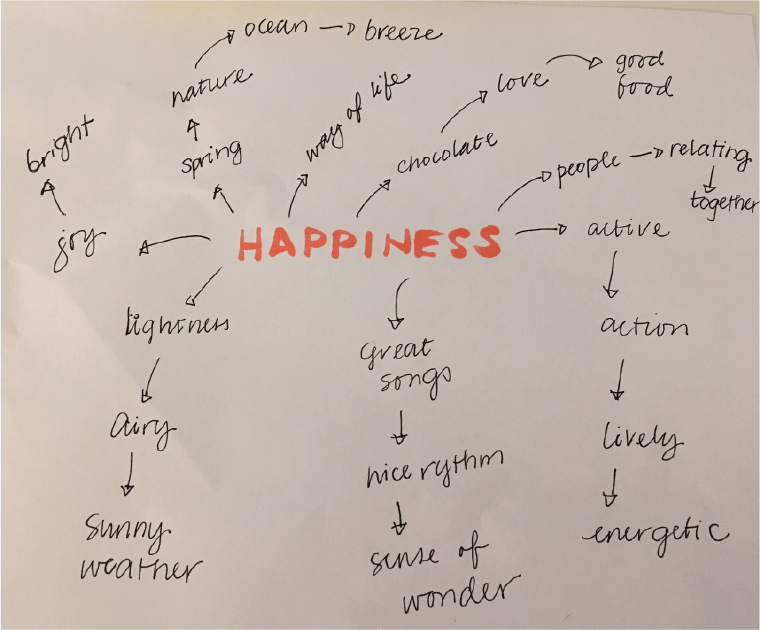 ocean
breeze
nature
way of life
love
good
food
bright
spring
chocolate
people
relating
together
joy
HAPPINESS
active
lightness
great
songs
action
airy
nice rythm
lively
sunny
weather
sense of
wonder
energetic